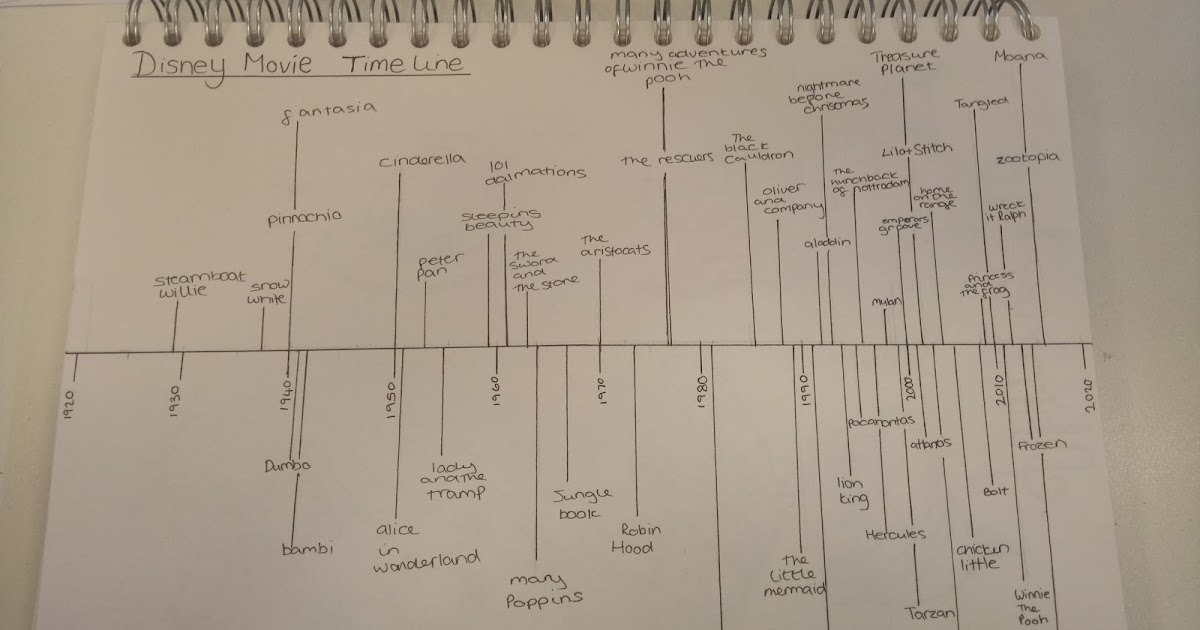 Disney Movie Time Line
many adventures
of winnie the
pooh
Treasure
Planet
Moana
fantasia
nightmare
before
christmas
Tangled
cinderella
101
dalmations
the rescuers
The
black
cauldron
Lilo+Stitch
zootopia
pinnochio
sleeping
beauty
oliver
and
company
the
hunchback
of nottradam
home
on the
range
emperors
groove
wreck
it Ralph
steamboat
willie
snow
white
peter
pan
the
sword
and
the stone
The
aristocats
aladdin
mulan
princess
and
the frog
1920
1930
1940
1950
1960
1970
1980
1990
2000
2010
2020
Dumbo
bambi
alice
in
wonderland
lady
and the
tramp
mary
Poppins
Jungle
book
Robin
Hood
The
Little
mermaid
lion
king
pocahontas
Hercules
Tarzan
atlantis
chicken
little
Bolt
Frozen
Winnie
The
Pooh